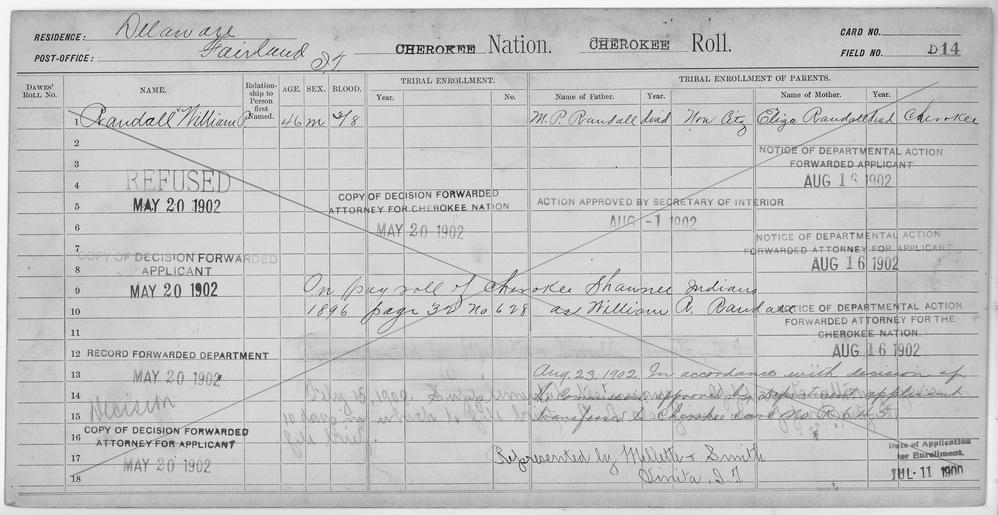 RESIDENCE: Delaware
POST-OFFICE: Fairland I.T.
CHEROKEE Nation. CHEROKEE Roll.
CARD NO.
FIELD NO. D14
DAWES' ROLL NO. NAME. Relationship to Person first Named. AGE. SEX. BLOOD. TRIBAL ENROLLMENT. Year. No. TRIBAL ENROLLMENT OF PARENTS. Name of Father. Year. Name of Mother. Year.
1 Randall William P. 46 m 3/8 M. P. Randall dead Non Citz Eliza Randall dead Cherokee
2
3
NOTICE OF DEPARTMENTAL ACTION
FORWARDED APPLICANT
AUG 16 1902
4
REFUSED
MAY 20 1902
5
COPY OF DECISION FORWARDED
ATTORNEY FOR CHEROKEE NATION
MAY 20 1902
ACTION APPROVED BY SECRETARY OF INTERIOR
AUG -1 1902
6
7
NOTICE OF DEPARTMENTAL ACTION
FORWARDED ATTORNEY FOR APPLICANT
AUG 16 1902
COPY OF DECISION FORWARDED
8
APPLICANT
MAY 20 1902
9 On pay roll of Cherokee Shawnee Indians
10 1896 page 32 No 628 as William R. Randall
NOTICE OF DEPARTMENTAL ACTION
FORWARDED ATTORNEY FOR THE
CHEROKEE NATION.
AUG 16 1902
11
12 RECORD FORWARDED DEPARTMENT
13 MAY 20 1902
Aug. 23, 1902. In accordance with decision of
14 the Commission approved by Department applicant
15 transferred to Cherokee card No. R 645
Decision
16
COPY OF DECISION FORWARDED
ATTORNEY FOR APPLICANT
MAY 20 1902
17 Represented by Mellette & Smith
18 Vinita, I.T.
Date of Application
for Enrollment.
JUL 11 1900